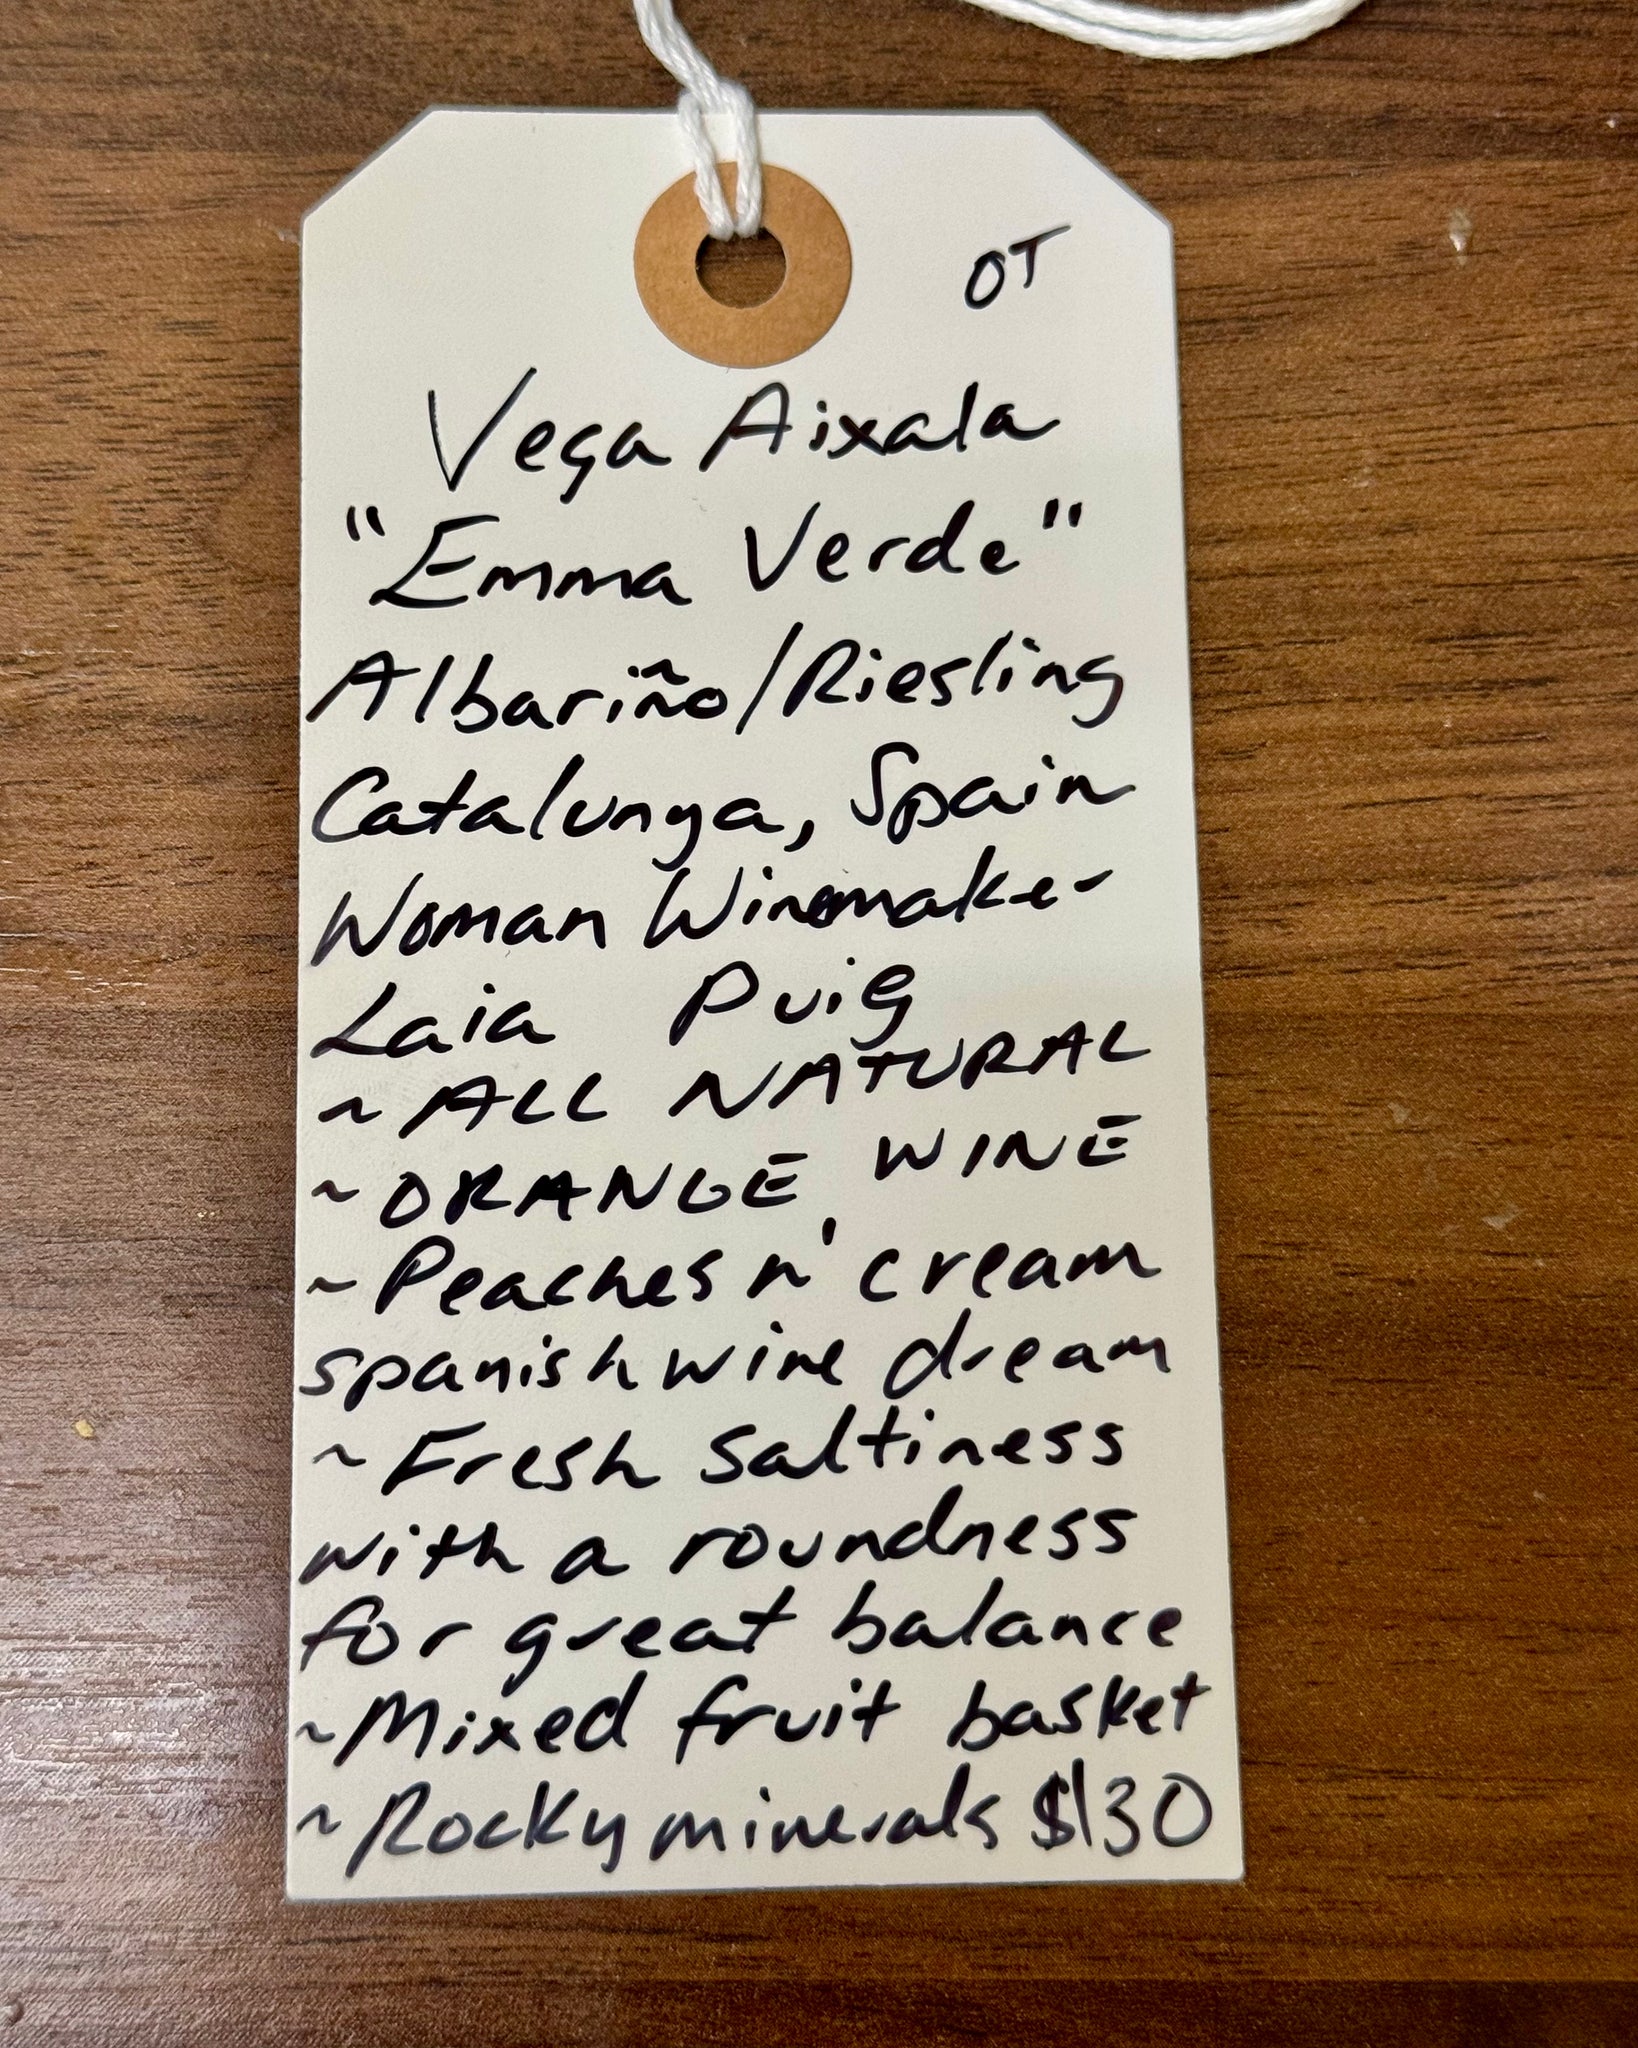 OT
Vega Aixala
"Emma Verde"
Albariño/Riesling
Catalunya, Spain
Woman Winemaker
Laia Puig
~ ALL NATURAL
~ ORANGE WINE
~ Peaches n' cream
spanish wine dream
~ Fresh saltiness
with a roundness
for great balance
~ Mixed fruit basket
~ Rocky minerals $130